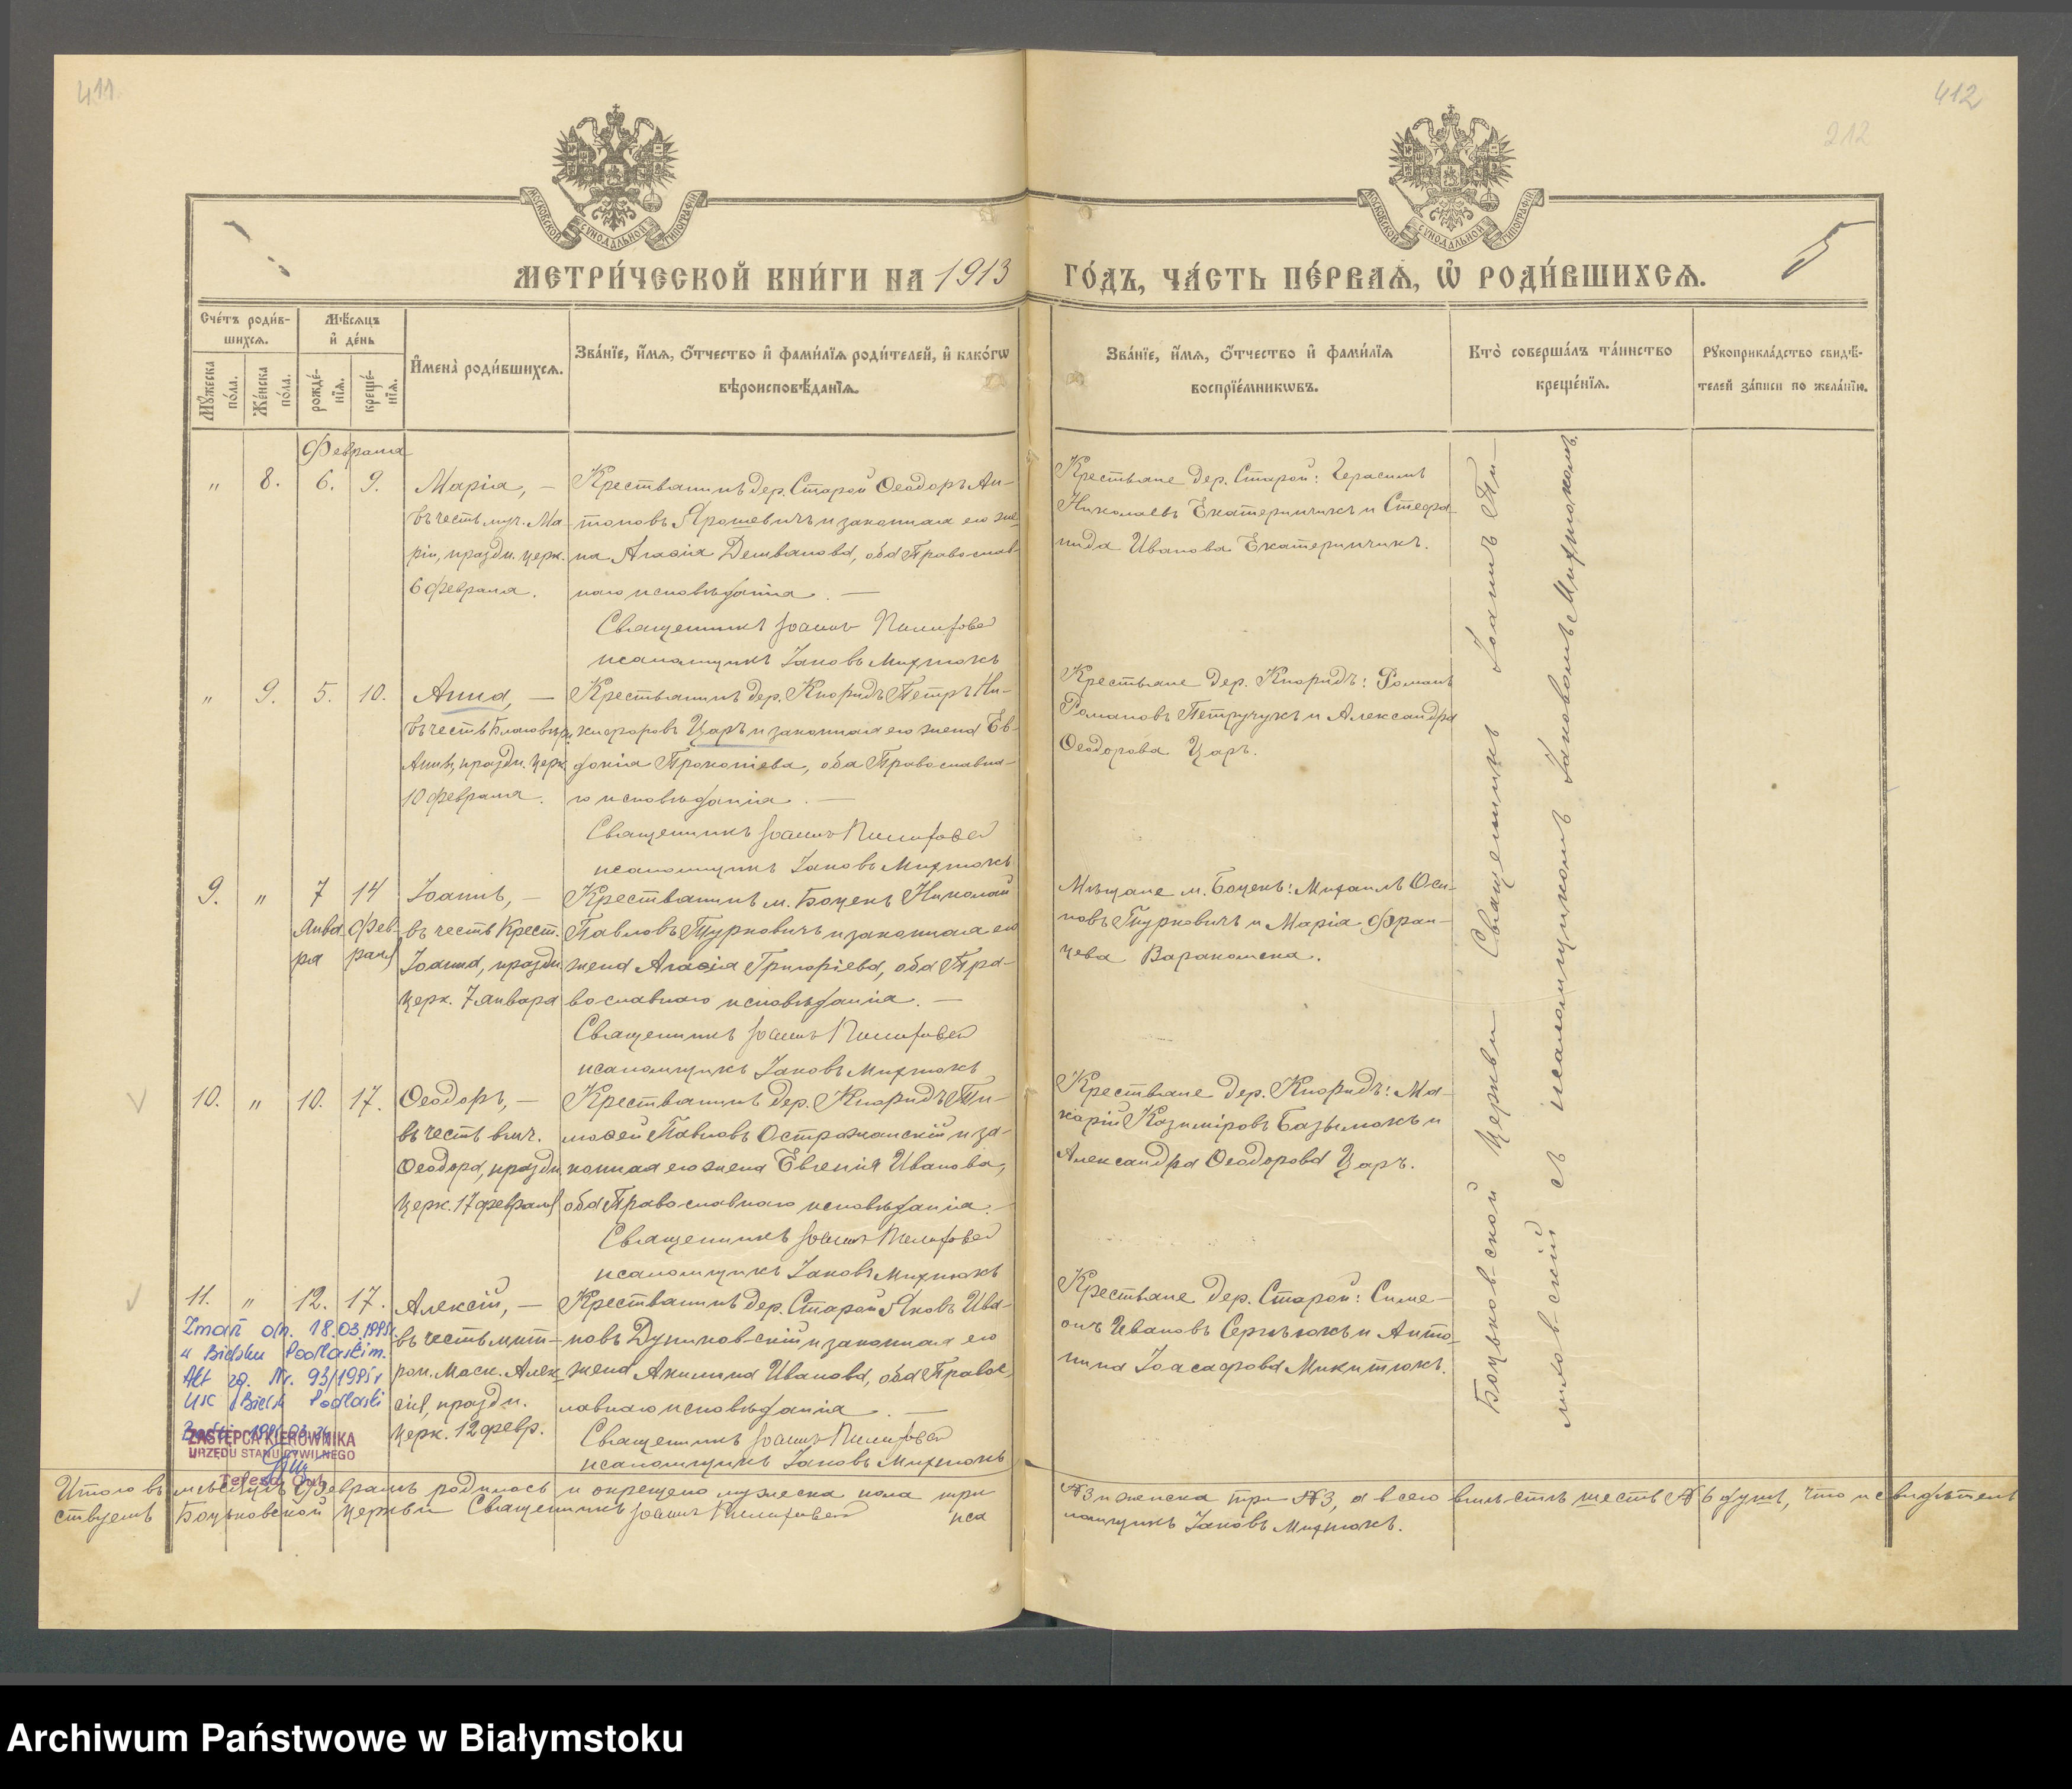 411.
412
212
МОСКОВСКОЙ СѴНОДАЛЬНОЙ ТИПОГРАФІИ
МОСКОВСКОЙ СѴНОДАЛЬНОЙ ТИПОГРАФІИ
МЕТРИ́ЧЕСКОЙ КНИ́ГИ НА 1913 ГО́ДЪ, ЧА́СТЬ ПЕ́РВАЯ, Ѿ РОДИ́ВШИХСЯ.
5
Сче́тъ роди́в-
шихся.
Мѣ́сяцъ
и де́нь
Мꙋжеска
по́ла.
Же́нска
по́ла.
рожде́-
нїя.
креще́-
нїя.
Имена̀ роди́вшихся.
Зва́нїе, и́мя, о́тчество и фами́лїя роди́телей, и како́гѡ
вѣроисповѣ́данїя.
Зва́нїе, и́мя, о́тчество и фами́лїя
воспрїе́мникѡвъ.
Кто̀ соверша́лъ та́инство
креще́нїя.
Рꙋкоприкла́дство свидѣ́-
телей за́писи по жела́нїю.
Февраля
" 8. 6. 9.
Марія, —
въ честь муч. Ма-
ріи, праздн. церк.
6 февраля.
Крестьянинъ дер. Старой Ѳеодоръ Ан-
тоновъ Ярошевичъ и законная его же-
на Агаѳія Демьянова, оба Православ-
наго исповѣданія. —
Священникъ Іоаннъ
псаломщикъ Іаковъ Михнюкъ
Крестьяне дер. Старой: Герасимъ
Николаевъ Екатеринчикъ и Стефа-
нида Иванова Екатеринчикъ.
" 9. 5. 10.
Анна, —
въ честь Благовѣрн.
Анны, праздн. церк.
10 февраля.
Крестьянинъ дер. Кноридъ Петръ Ни-
кифоровъ Царъ и законная его жена Ев-
докія Прокопіева, оба Православна-
го исповѣданія. —
Священникъ Іоаннъ
псаломщикъ Іаковъ Михнюкъ
Крестьяне дер. Кноридъ: Романъ
Романовъ Петручукъ и Александра
Ѳеодорова Царъ.
9. " 7 14
Янва- Фев-
ря раля
Іоаннъ, —
въ честь Крест.
Іоанна, праздн.
церк. 7 января
Крестьянинъ м. Боцекъ Николай
Павловъ Турковичъ и законная его
жена Агаѳія Григоріева, оба Пра-
вославнаго исповѣданія. —
Священникъ Іоаннъ
псаломщикъ Іаковъ Михнюкъ
Мѣщане м. Боцекъ: Михаилъ Оси-
повъ Турковичъ и Марія Фран-
цева Варакомска.
10. " 10. 17.
Ѳеодоръ, —
въ честь вмч.
Ѳеодора, праздн.
церк. 17 февраля
Крестьянинъ дер. Кноридъ Ти-
моѳей Павловъ Острожанскій и за-
конная его жена Евгенія Иванова,
оба Православнаго исповѣданія. —
Священникъ Іоаннъ
псаломщикъ Іаковъ Михнюкъ
Крестьяне дер. Кноридъ: Ма-
карій Казиміровъ Базылюкъ и
Александра Ѳеодорова Царъ.
11. " 12. 17.
Алексій, —
въ честь мит-
роп. Моск. Алек-
сія, праздн.
церк. 12 февр.
Крестьянинъ дер. Старой Яковъ Ива-
новъ Дуниковскій и законная его
жена Акилина Иванова, оба Правос-
лавнаго исповѣданія. —
Священникъ Іоаннъ
псаломщикъ Іаковъ Михнюкъ
Крестьяне дер. Старой: Симе-
онъ Ивановъ Сергѣюкъ и Анто-
нина Іоасафова Микитюкъ.
Zmarł dn. 18.03.1985r.
w Bielsku Podlaskim.
Akt zg. Nr. 93/1985r
USC Bielsk Podlaski
ZASTĘPCA KIEROWNIKA
URZĘDU STANU CYWILNEGO
Боцьковской церкви Священникъ Іоаннъ
съ псаломщикомъ Іаковомъ Михнюкомъ.
Итого въ мѣсяцѣ Февралѣ родилось и окрещено мужеска пола три № 3 и женска три № 3, а всего вмѣстѣ шесть № 6 душъ, что и свидѣтель-
ствуетъ Боцьковской церкви Священникъ Іоаннъ псаломщикъ Іаковъ Михнюкъ.
Archiwum Państwowe w Białymstoku